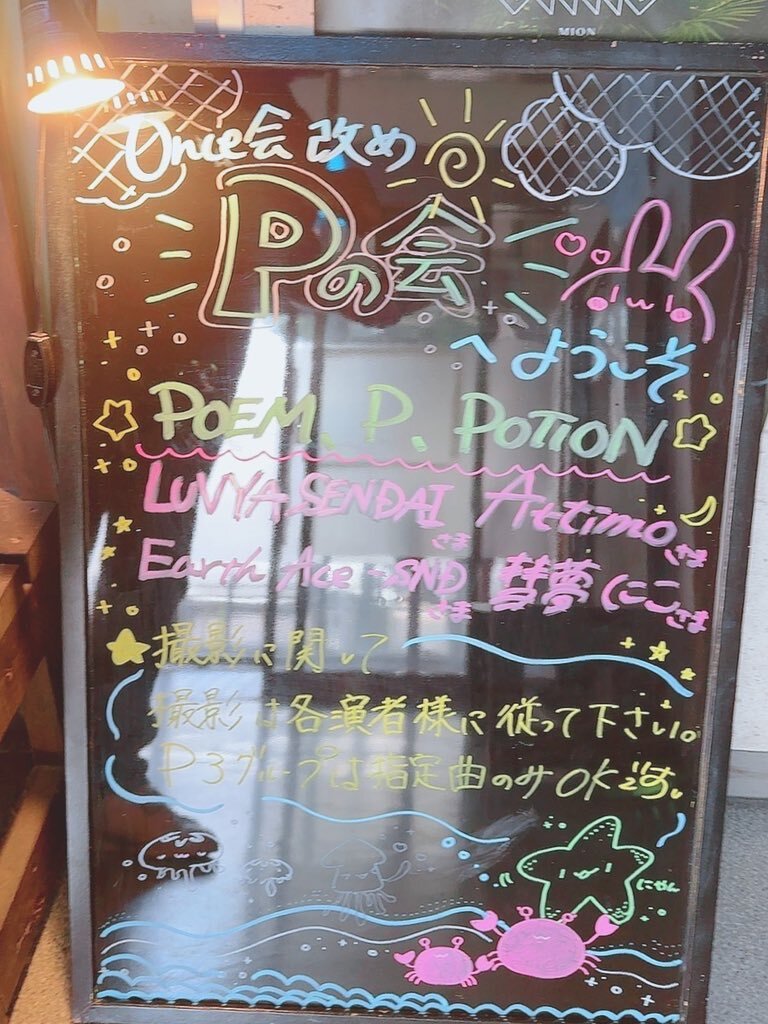 MION
Once会 改め
Pの会
へようこそ
POEM、P、POTION
LUVYA SENDAIさま Attimoさま
Earth Ace -SNDさま 彗夢にこさま
撮影に関して
撮影は各演者様に従って下さい。
P3グループは指定曲のみOKです。
にゃん